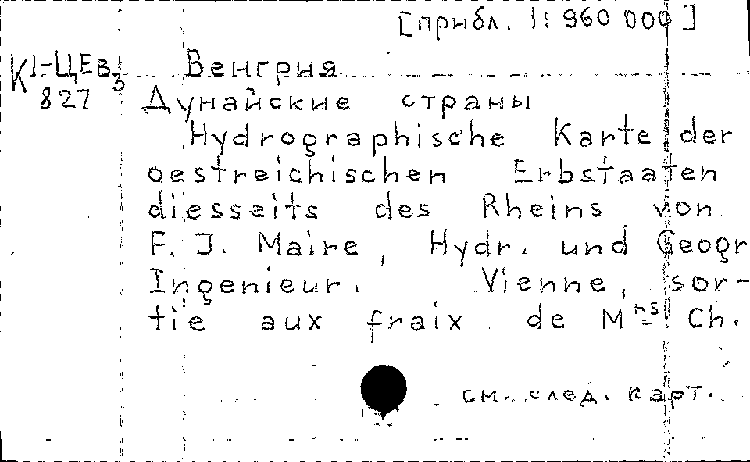 [прибл. 1: 960 000]
К1-ЦЕв3 Венгрия
827 Дунайские страны
Hydrographische Karte der
oestreichischen Erbstaaten
diesseits des Rheins von
F. J. Maire, Hydr. und Geogr
Ingenieur. Vienne, sor-
tie aux fraix de Mrs Ch.
см. след. карт.